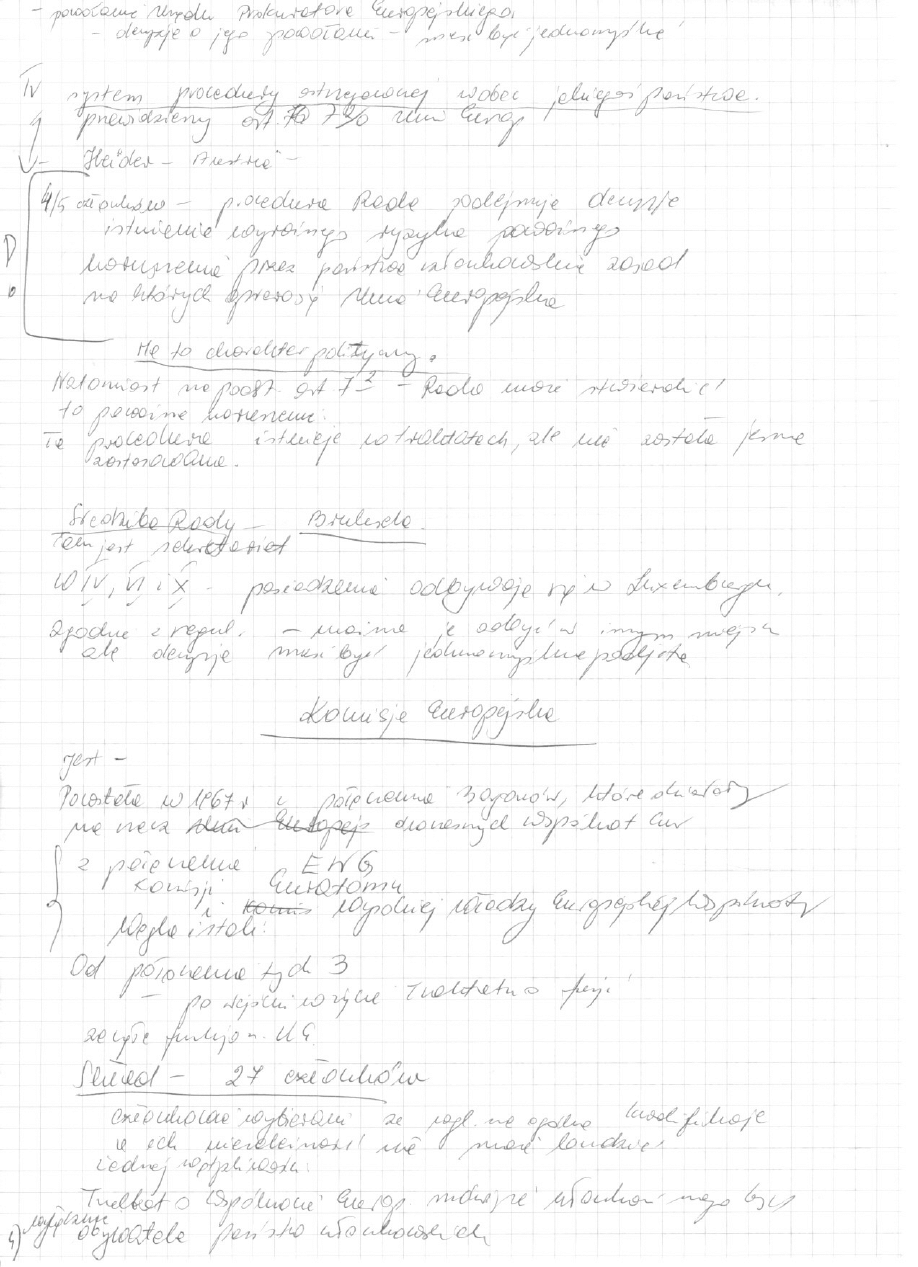 - powołanie Urzędu Prokuratora Europejskiego,
- decyzje o jego powołaniu - musi być jednomyślne
IV system procedury ostrzegawczej wobec jakiegoś państwa.
przewidziany art. 7 Unii Europ
- Haider - Austria -
4/5 członków - procedura Rada podejmuje decyzje
istnienie wyraźnego ryzyka poważnego
naruszenia przez państwo członkowskie zasad
na których opiera się Unia Europejska
Ma to charakter polityczny.
Natomiast na podst. art 7 2 - Rada może stwierdzić
to poważne naruszenie.
Ta procedura istnieje w traktatach, ale nie została jeszcze
zastosowana.
Siedziba Rady - Bruksela.
tam jest sekretariat
W IV, VI i X - posiedzenia odbywają się w Luxemburgu.
zgodnie z regul. - można je odbyć w innym miejscu
ale decyzje musi być jednomyślnie podjęta
Komisja Europejska
jest -
Powstała w 1967 r z połączenia 3 organów, które działały
na rzecz Unii Europejs ówczesnych Wspólnot Eur
z połączenia EWG
Komisji Euratomu
i Komis Wysokiej Władzy Europejskiej Wspólnoty
Węgla i Stali.
Od połączenia tych 3
- po wejściu w życie Traktatu o fuzji
Skład - 27 członków
członkowie wybierani ze wzgl. na ogólne kwalifikacje
a ich niezależność nie może budzić
żadnej wątpliwości.
Traktat o Wspólnocie Europ. mogą być
4) wyłącznie
obywatele państw członkowskich